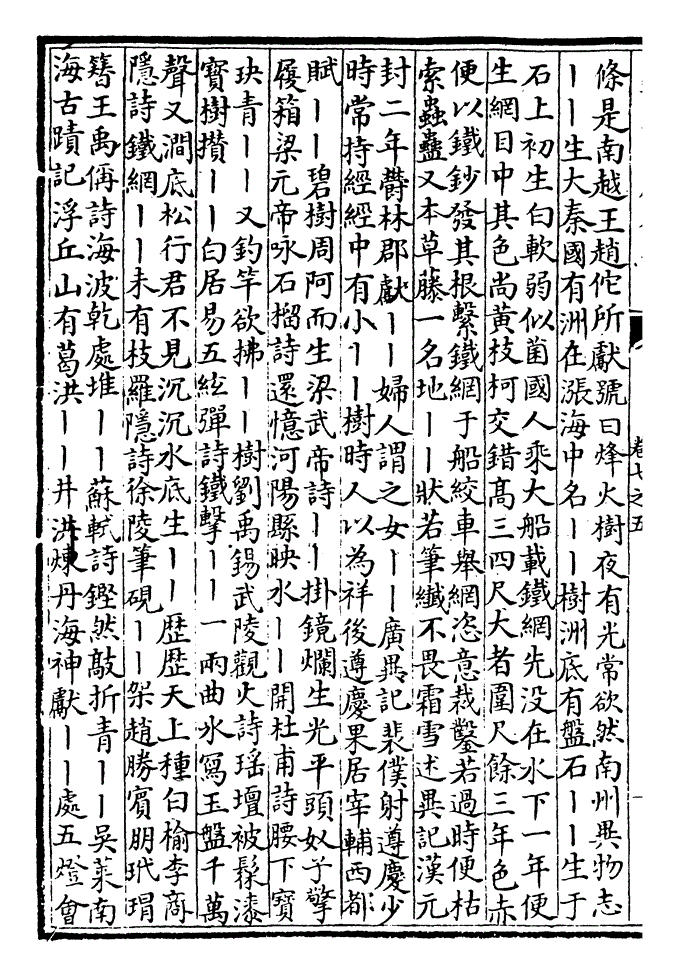 卷七之五
條是南越王趙佗所獻號曰烽火樹夜有光常欲然南州異物志
丨丨生大秦國有洲在漲海中名丨丨樹洲底有盤石丨丨生于
石上初生白軟弱似菌國人乘大船載鐵網先没在水下一年便
生網目中其色尚黄枝柯交錯髙三四尺大者圍尺餘三年色赤
便以鐵鈔發其根繫鐵網于船絞車舉網恣意裁鑿若過時便枯
索蟲蠱又本草藤一名地丨丨狀若筆纖不畏霜雪述異記漢元
封二年欎林郡獻丨丨婦人謂之女丨丨廣異記裴僕射遵慶少
時常持經經中有小丨丨樹時人以為祥後遵慶果居宰輔西都
賦丨丨碧樹周阿而生梁武帝詩丨丨掛鏡爛生光平頭奴子擎
履箱梁元帝咏石榴詩還憶河陽縣映水丨丨開杜甫詩腰下寳
玦青丨丨又釣竿欲拂丨丨樹劉禹錫武陵觀火詩瑶壇被髹漆
寳樹攅丨丨白居易五絃彈詩鐵擊丨丨一兩曲水冩玉盤千萬
聲又澗底松行君不見沉沉水底生丨丨歴歴天上種白榆李商
隱詩鐵網丨丨未有枝羅隱詩徐陵筆硯丨丨架趙勝賓朋玳瑁
簪王禹偁詩海波乾處堆丨丨蘇軾詩鏗然敲折青丨丨吳萊南
海古蹟記浮丘山有葛洪丨丨井洪煉丹海神獻丨丨處五燈會